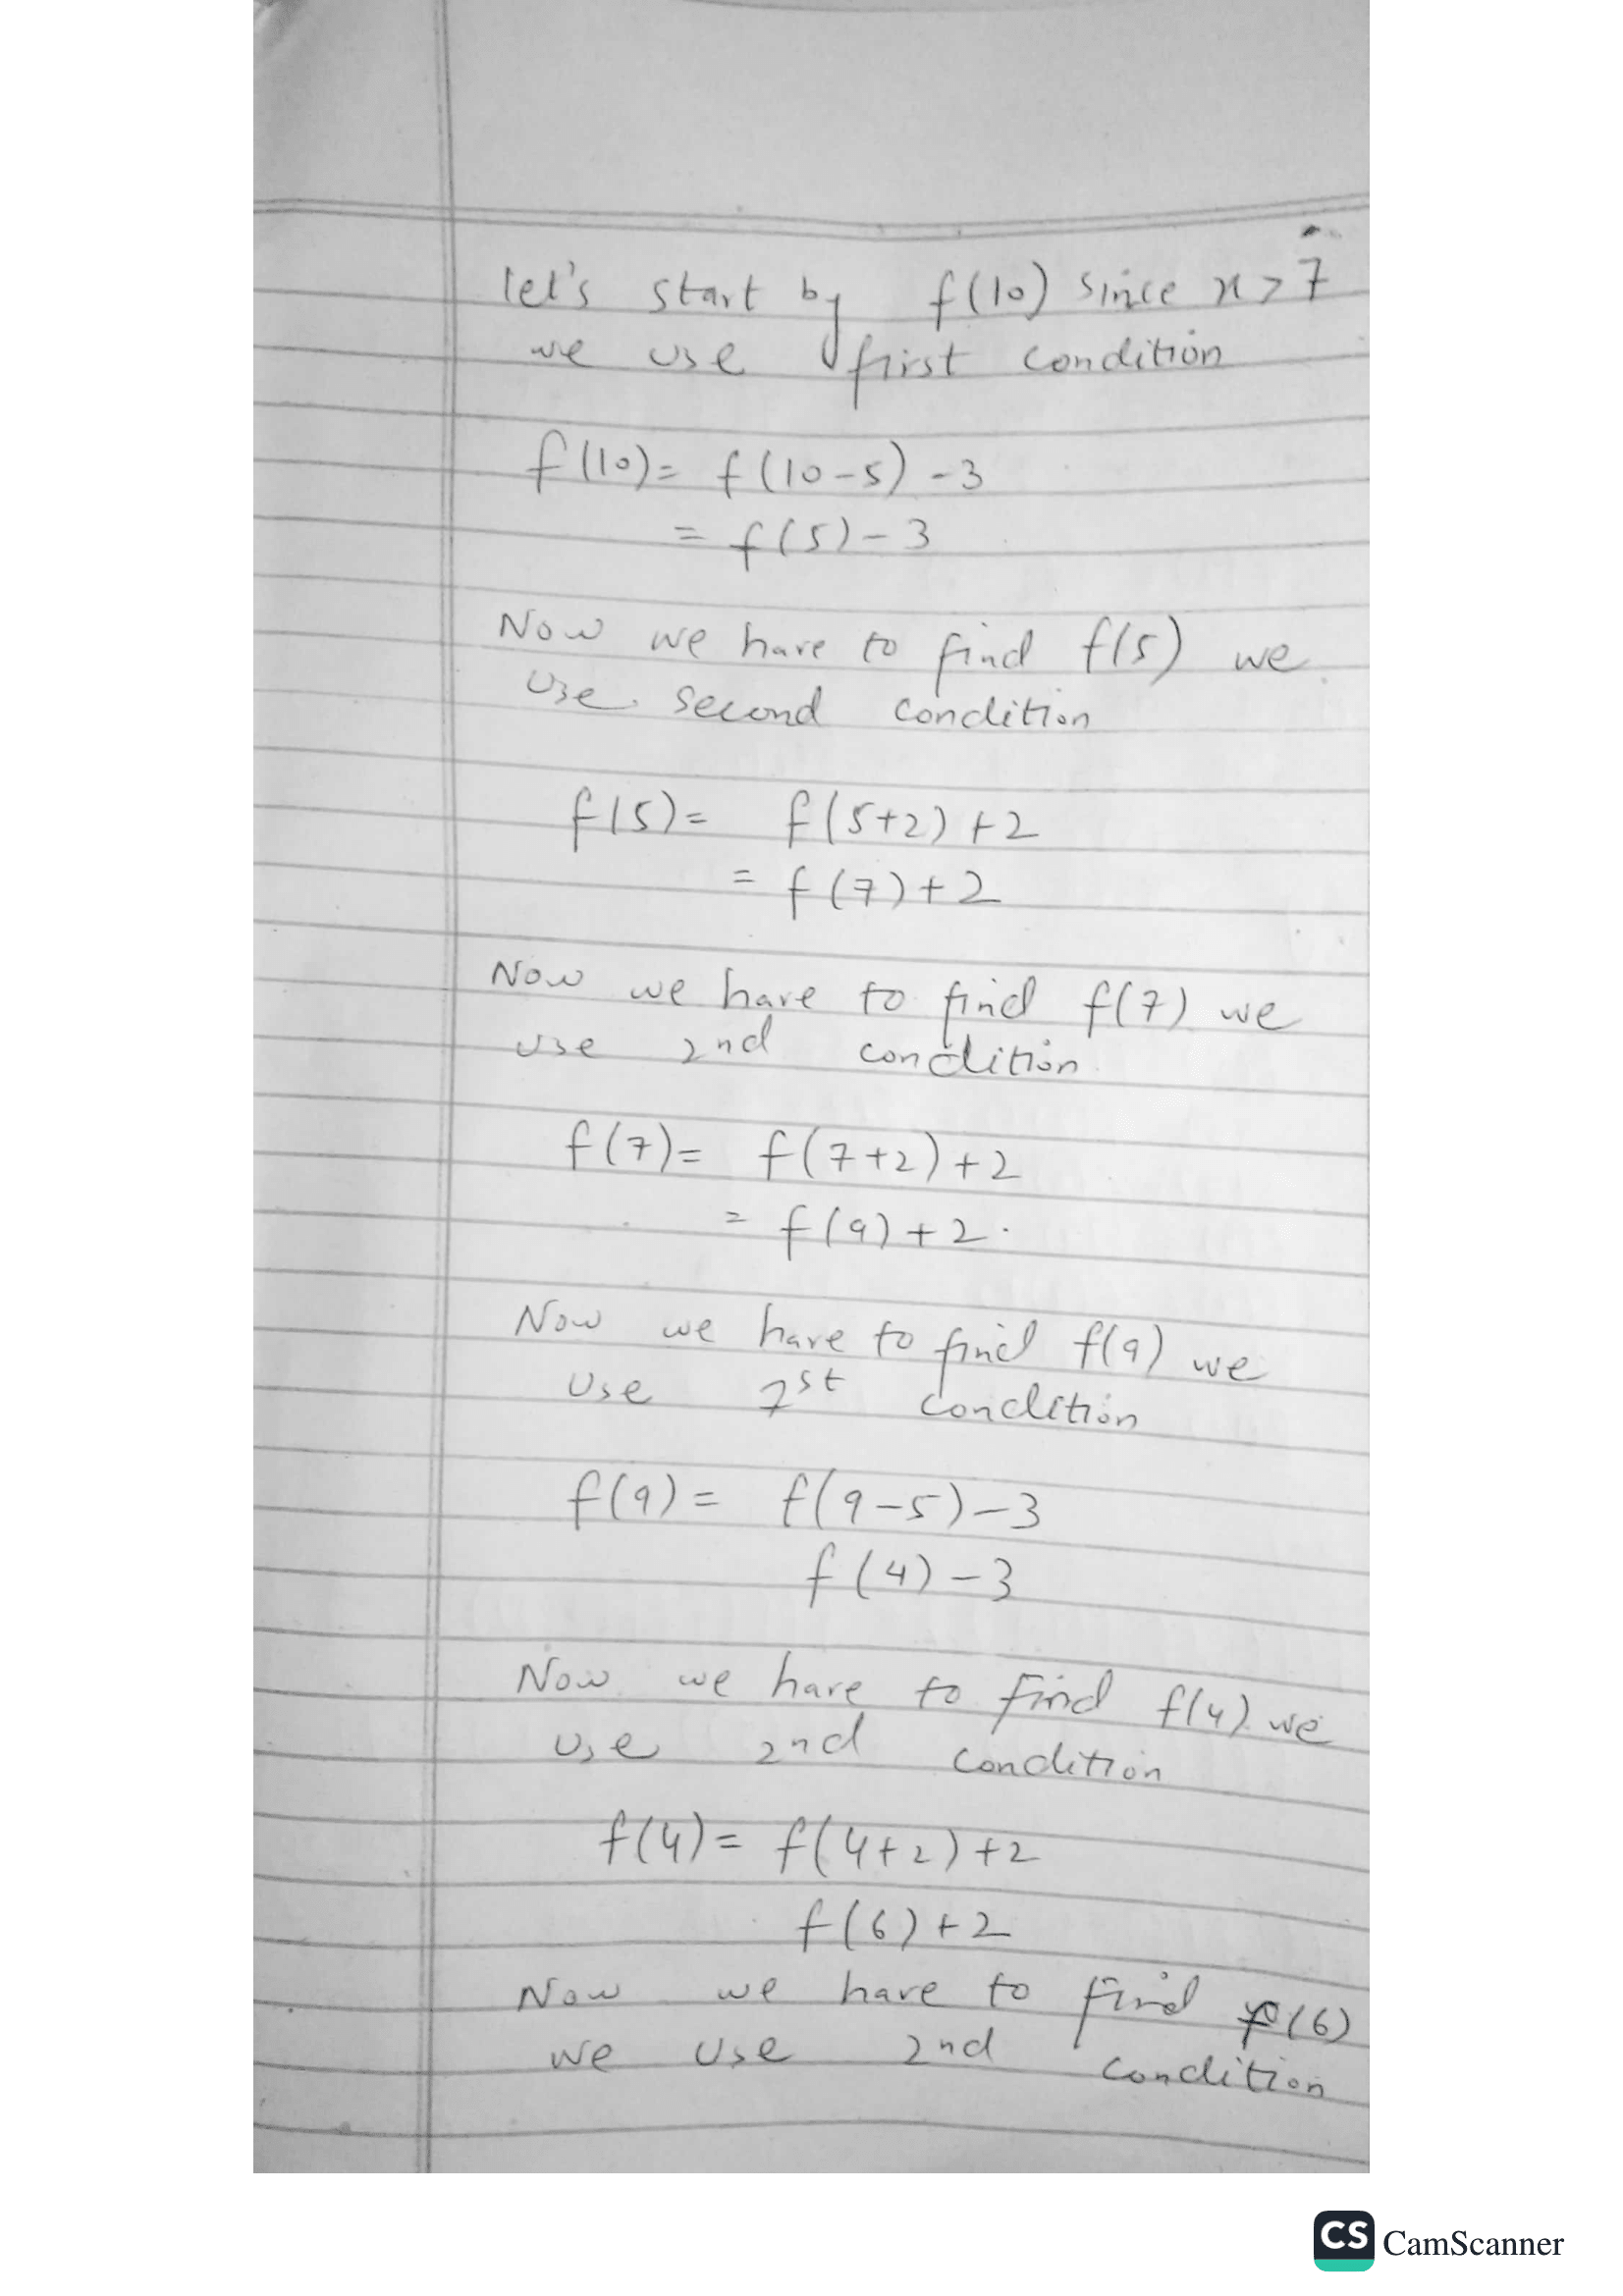 let's start by f(10) since x>7
we use first condition
f(10)= f(10-5) -3
= f(5)-3
Now we have to find f(5) we
use second condition
f(5)= f(5+2)+2
= f(7)+2
Now we have to find f(7) we
use 2nd condition
f(7)= f(7+2)+2
= f(9)+2.
Now we have to find f(9) we
use 1st condition
f(9)= f(9-5)-3
f(4)-3
Now we have to find f(4) we
use 2nd condition
f(4)= f(4+2)+2
f(6)+2
Now we have to find f(6)
we use 2nd condition
CS CamScanner